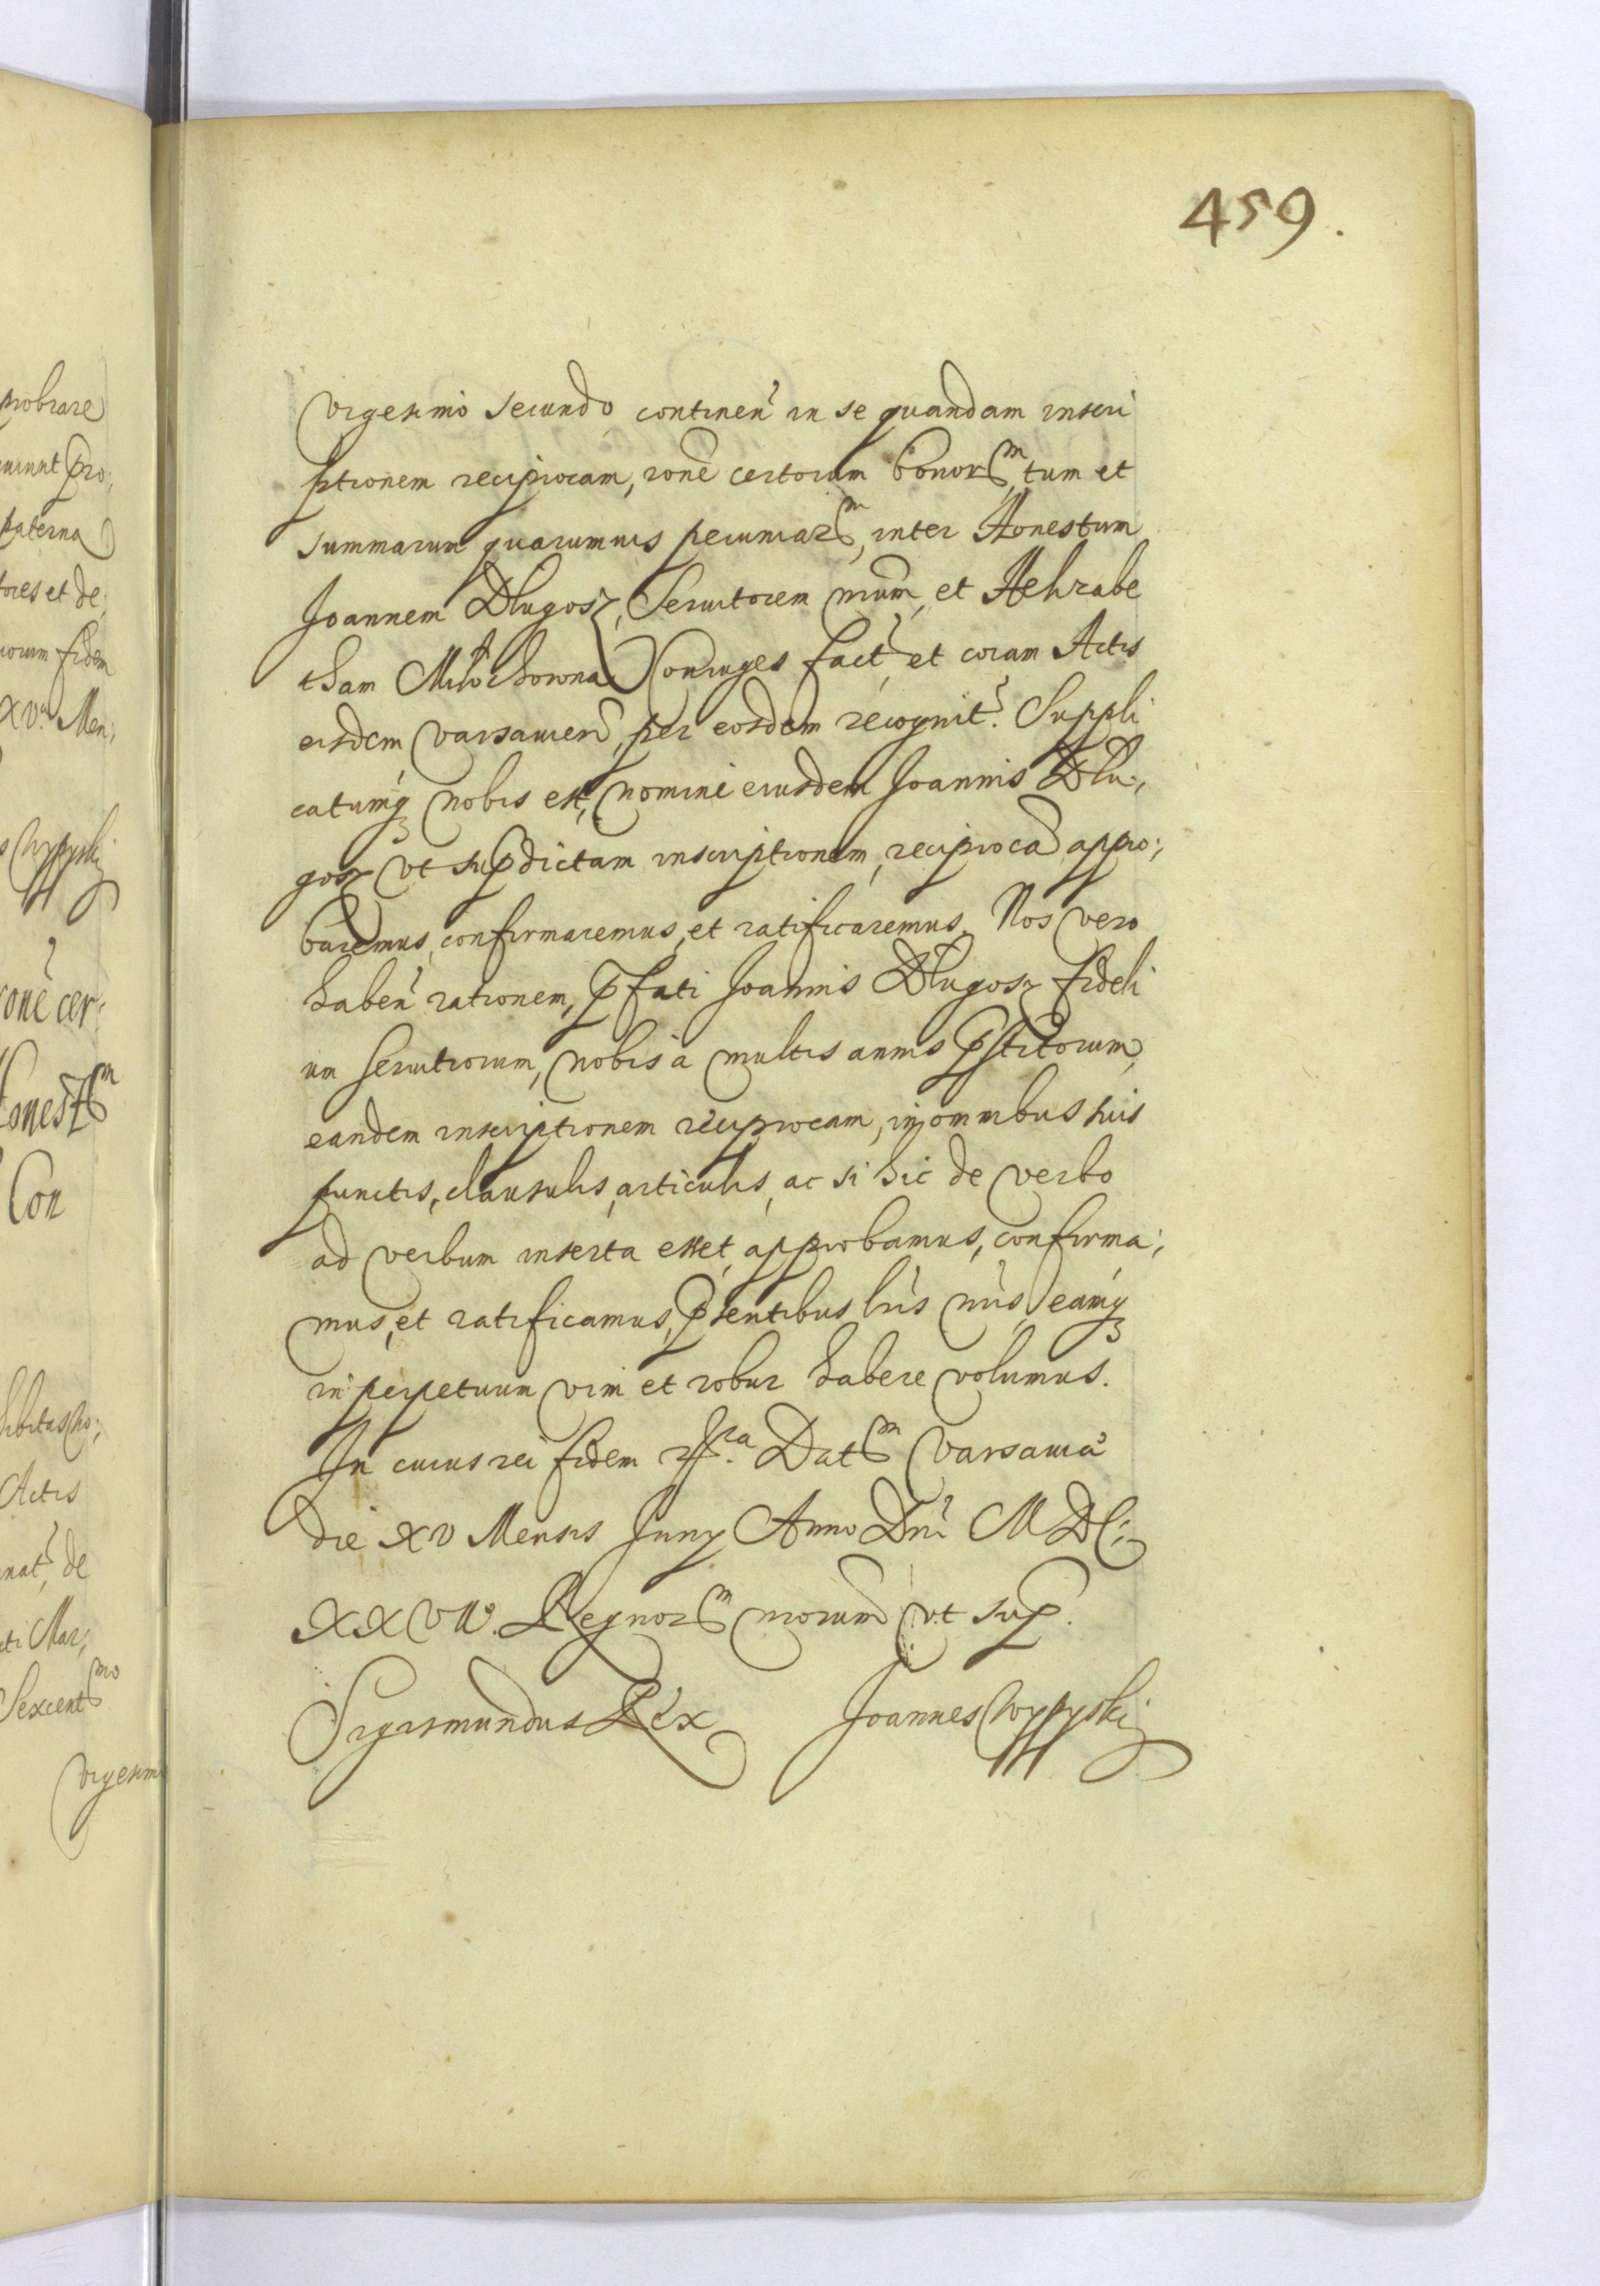 459.
vigesimo secundo continen̄ in se quandam inscri
ptionem reciprocam, rone certorum bonor͞m, tum et
summarum quarumuis pecuniar͞m, inter Honestum
Joannem Długosz, Seruitorem nrum, et Hehrabe
tham Miłochowna Coniuges fact̄, et coram Actis
eisdem Varsauien̄, per eosdem recognit̄. Suppli
catumq nobis est, nomine eiusdem Joannis Dłu;
gosz vt supdictam inscriptionem, reciprocā appro;
baremus, confirmaremus, et ratificaremus. Nos vero
haben̄ rationem, pfati Joannis Długosz fideli
um seruitiorum, nobis a multis annis pstitorum,
eandem inscriptionem reciprocam, in omnibus suis
punctis, clausulis, articulis, ac si hic de verbo
ad verbum inserta esset, approbamus, confirma;
mus, et ratificamus, psentibus lris nris, eamq
in perpetuum vim et robur habere volumus.
In cuius rei fidem &ra. Dat͞m Varsauiā
die XV Mensis Juny Anno Dni MDC;
XXVII. Regnor͞m nrorum vt sup.
Sigismundus Rex Joannes Wypyski